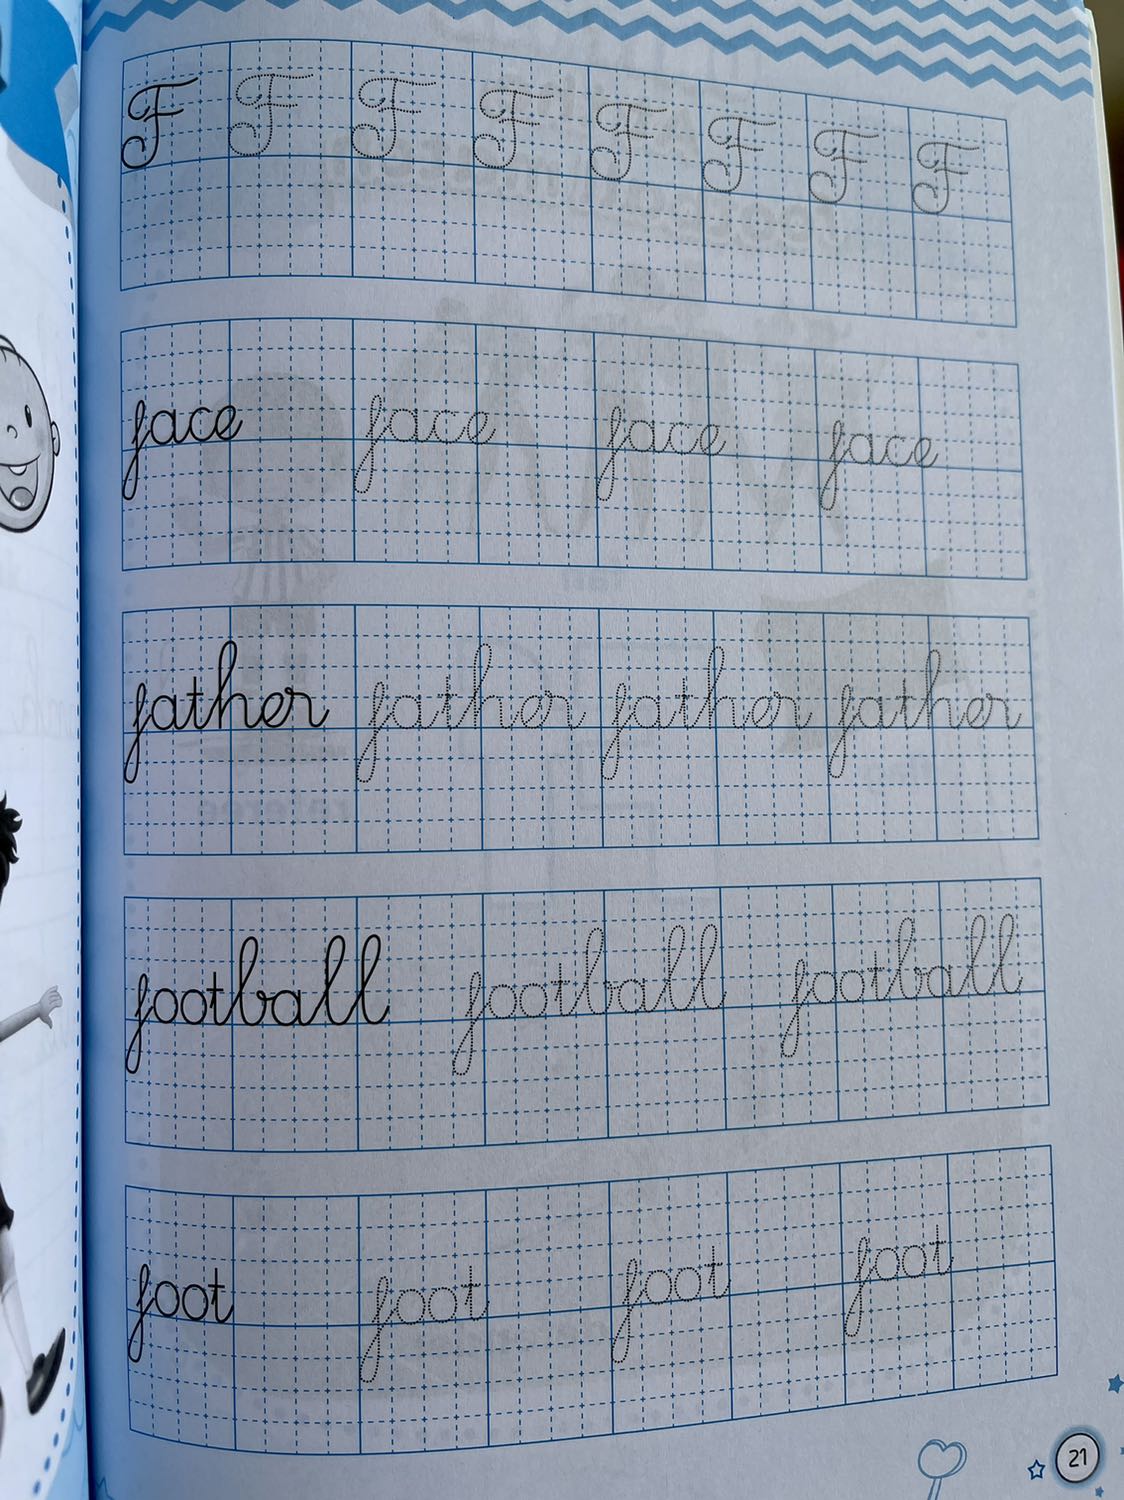 F F F F F F F F
face face face face
father father father father
football football football
foot foot foot foot
21